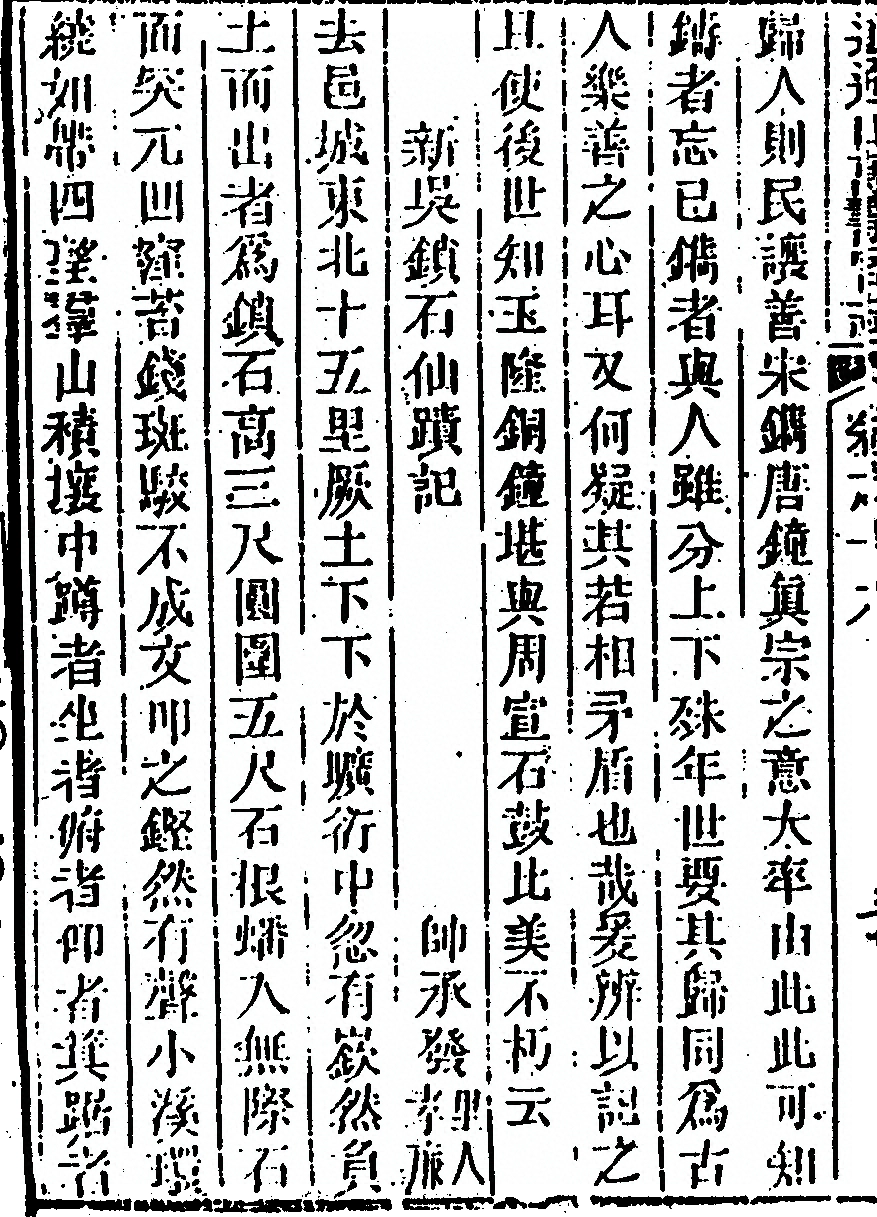 歸人則民讓善宋鐫唐鐘眞宗之意大率由此此可知
鑄者忘已鐫者與人雖分上下殊年世要其歸同爲古
人樂善之心耳又何疑其若相矛盾也哉爰辨以記之
且使後世知玉隆銅鐘堪與周宣石鼓比美不朽云
新吳鎖石仙蹟記 帥承發 里人孝廉
去邑城東北十五里厥土下下於壙衍中忽有嶔然負
土而出者爲鎖石高三尺圓圍五尺石根蟠入無際石
面突兀凹窪苔錢斑駁不成文叩之鏗然有聲小溪環
繞如帶四望羣山積壤中蹲者坐者俯者仰者箕踞者